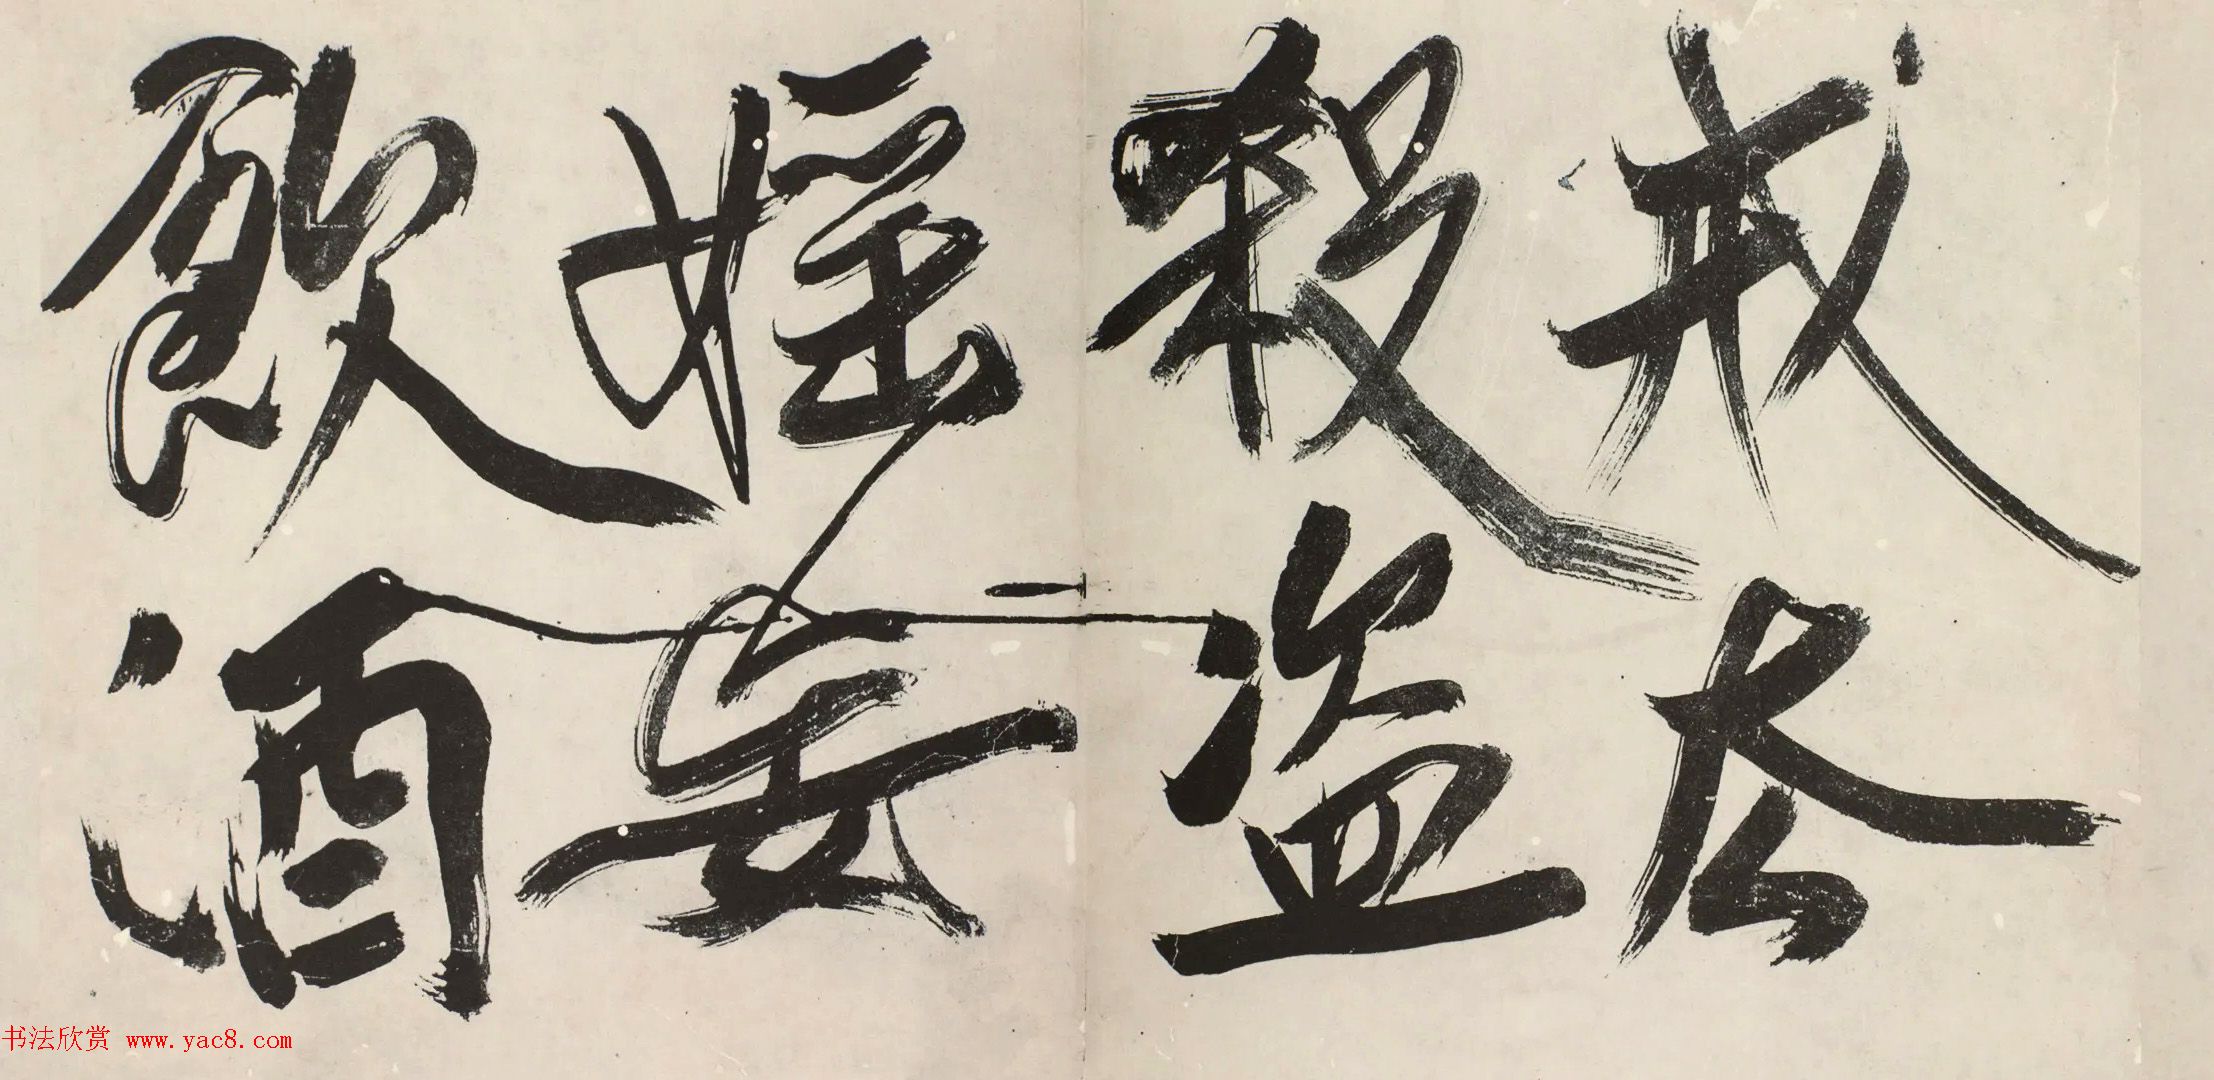 戒
殺盜
婬妄
飲酒
书法欣赏 www.yac8.com